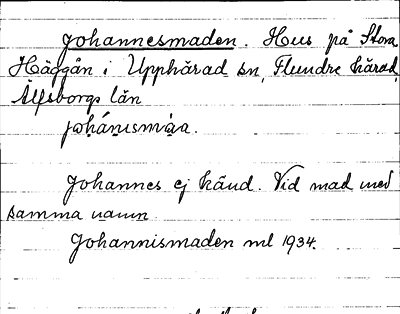 Johannesmaden. Hus på Stora
Häggån i Upphärad sn, Flundre härad,
Älfsborgs län
johánịsmạ̀a.
Johannes ej känd. Vid mad med
samma namn.
Johannismaden ml 1934.